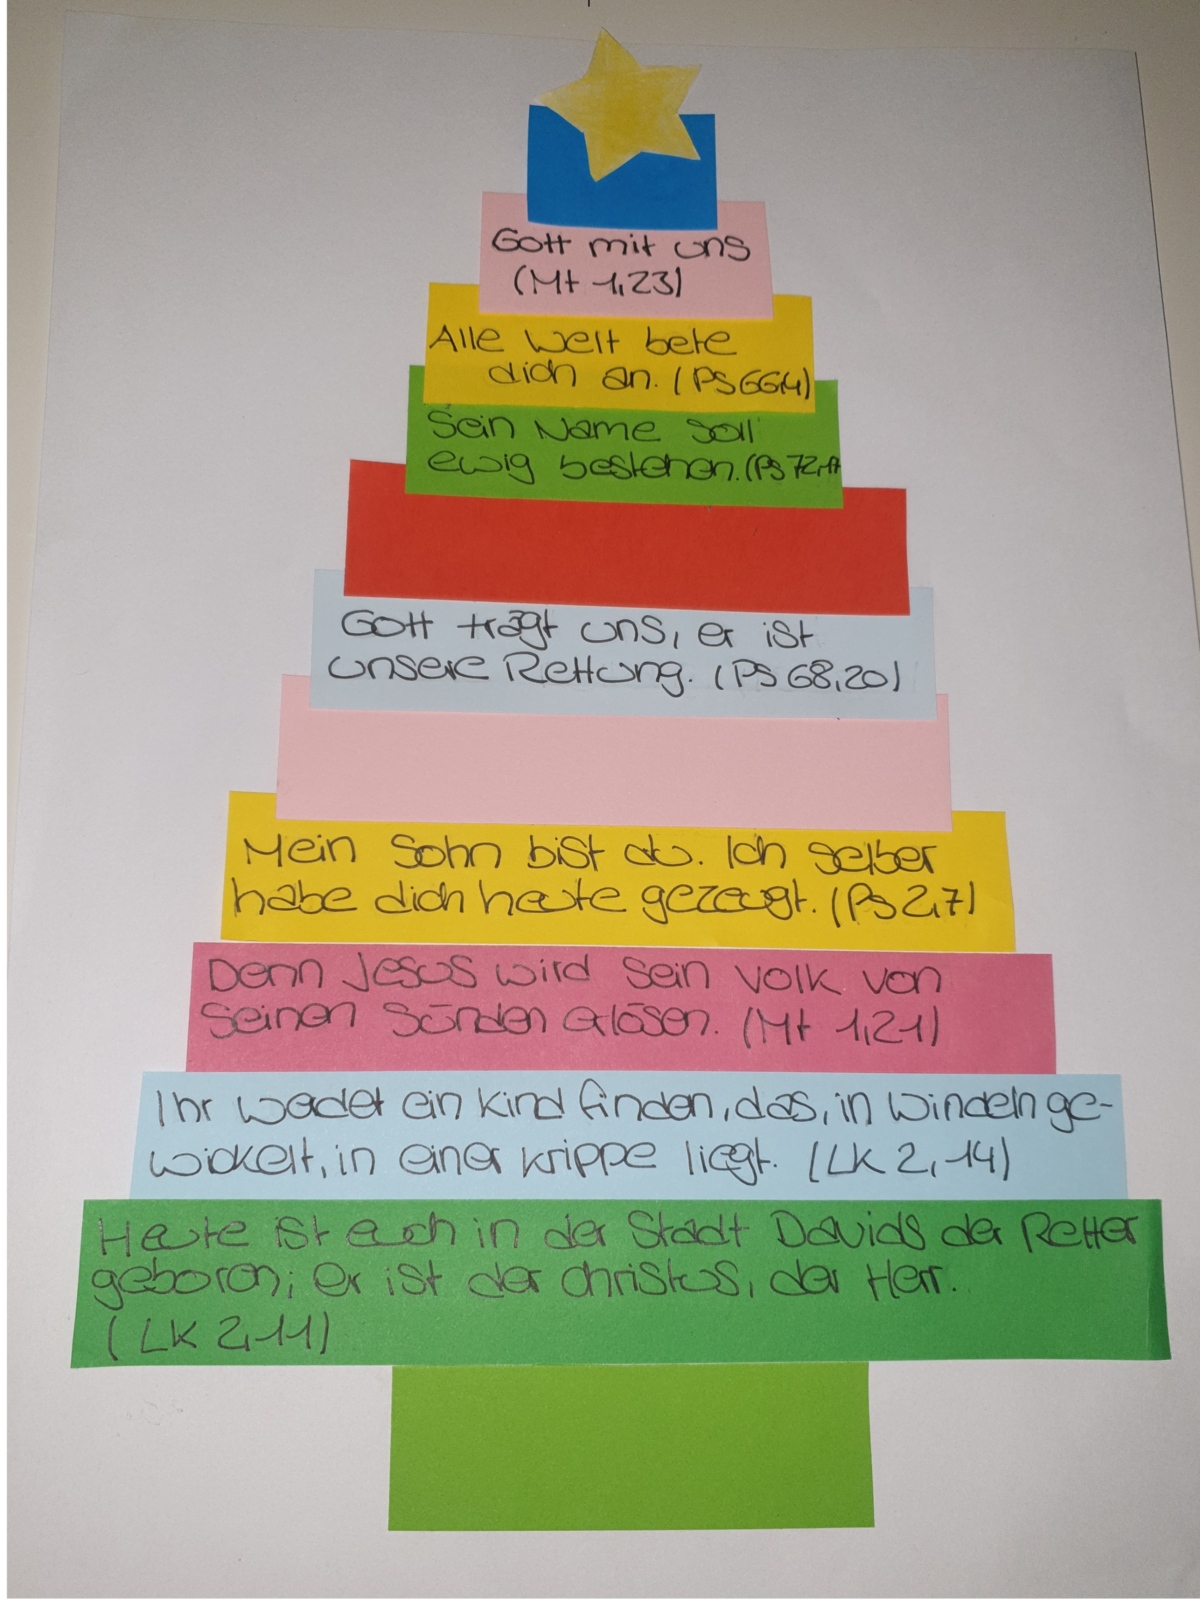 Gott mit uns
(Mt 1,23)
Alle Welt bete
dich an. (Ps 66,4)
Sein Name soll
ewig bestehen. (Ps 72,17
Gott trägt uns, er ist
unsere Rettung. (Ps 68,20)
Mein Sohn bist du. Ich selber
habe dich heute gezeugt. (Ps 2,7)
Denn Jesus wird sein Volk von
seinen Sünden erlösen. (Mt 1,21)
Ihr werdet ein Kind finden, das, in Windeln ge-
wickelt, in einer Krippe liegt. (LK 2,14)
Heute ist euch in der Stadt Davids der Retter
geboren; er ist der Christus, der Herr.
(LK 2,11)